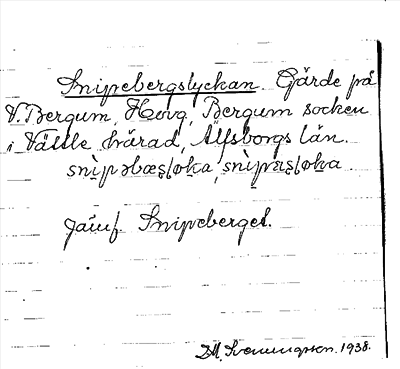 Snipebergslyckan. Gärde på
V. Bergum, Hovg, Bergum socken
i Vättle härad, Älfsborgs län.
snìpəbæʂḷøka, snìpæʂḷøka.
Jämf. Snipeberget.
D.M. Svenungsson. 1938.